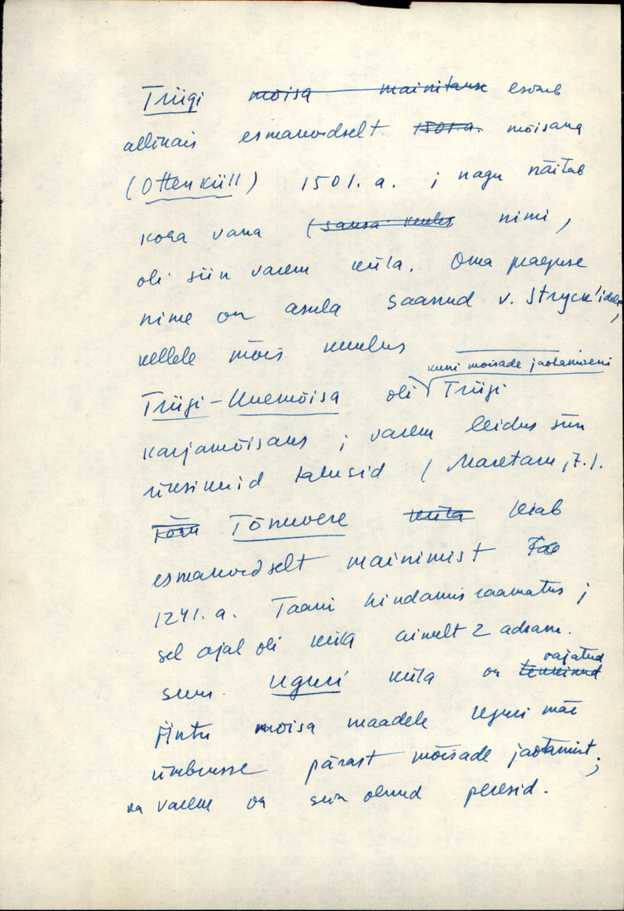 Triigi mõisa mainitakse esineb
allikais esmakordselt 1501.a. mõisana
(Ottenküll) 1501.a. ; nagu näitab
koha vana (saksa keeles nimi,
oli siin varem küla. Oma praeguse
nime on asula saanud v. Stryck'idelt,
kellele mõis kuulus
kuni mõisade jaotamiseni
Triigi-Uuemõisa oli Triigi
karjamõisaks ; varem leidus siin
üksikuid talusid (Maretam, 7.).
Tõnuvere küla leiab
esmakordselt mainimist
1241.a. Taani hindamisraamatus ;
sel ajal oli küla ainult 2 adram.
suur. Uguri küla on rajatud
Äntu mõisa maadele Uguri mäe
ümbrusse pärast mõisade jaotamist ;
ka varem on siin olnud peresid.